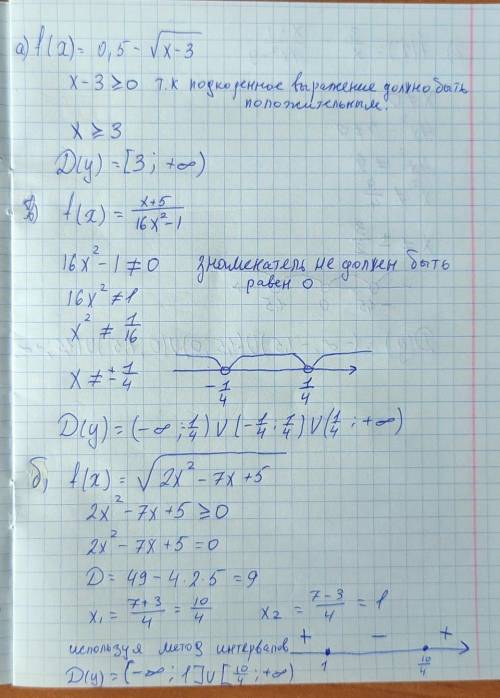 а) f(x) = 0,5 - √(x-3)
x-3 ≥ 0 т.к подкоренное выражение должно быть
положительным.
x ≥ 3
D(y) = [3 ; +∞)
в) f(x) = (x+5)/(16x²-1)
16x² - 1 ≠ 0 знаменатель не должен быть
равен 0
16x² ≠ 1
x² ≠ 1/16
x ≠ ± 1/4
-1/4 1/4
D(y) = (-∞ ; 1/4) ∪ (-1/4 ; 1/4) ∪ (1/4 ; +∞)
б) f(x) = √(2x² - 7x + 5)
2x² - 7x + 5 ≥ 0
2x² - 7x + 5 = 0
D = 49 - 4 · 2 · 5 = 9
x₁ = (7+3)/4 = 10/4 x₂ = (7-3)/4 = 1
используя метод интервалов + - +
1 10/4
D(y) = (-∞ ; 1] ∪ [10/4 ; +∞)